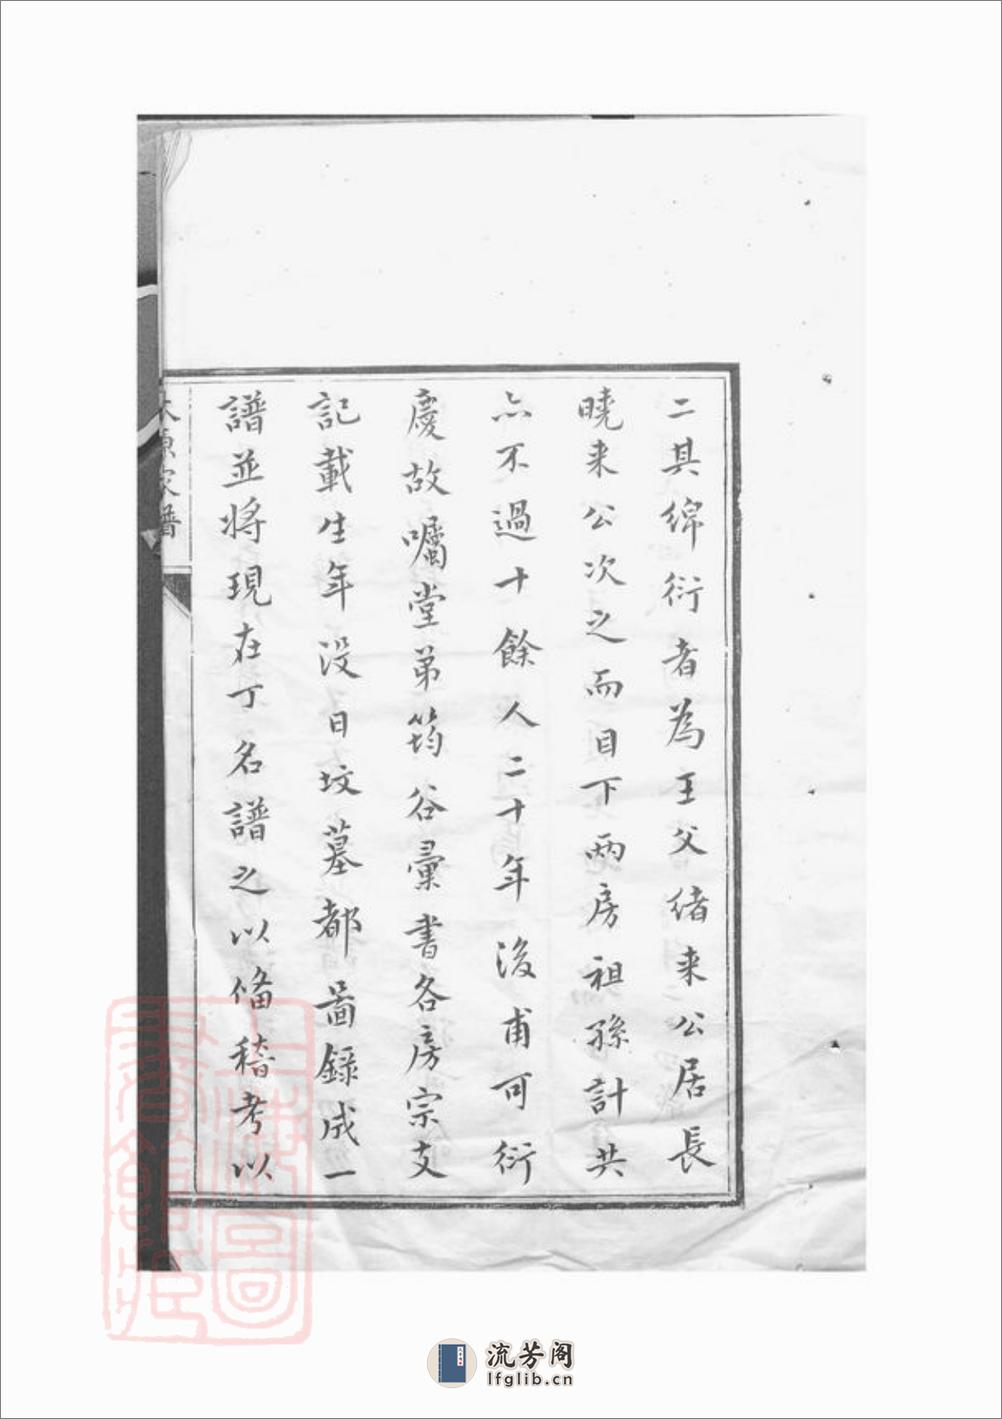 二其綿衍者為王父緒来公居長
曉来公次之而目下两房祖孫計共
亦不過十餘人二十年後甫可衍
慶故囑堂弟筠谷彙書各房宗支
記載生年没日坟墓都啚錄成一
譜並將現在丁名譜之以備稽考以
太原家譜
上海圖書館藏
流芳阁
lfglib.cn